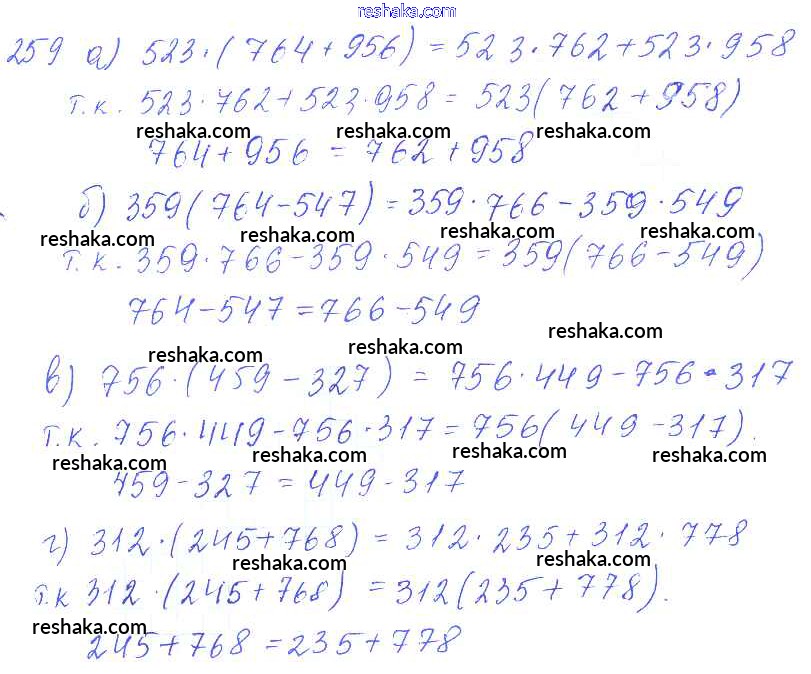 reshaka.com
259 а) 523·(764+956)=523·762+523·958
т.к. 523·762+523·958=523(762+958)
reshaka.com reshaka.com reshaka.com
764+956=762+958
б) 359(764-547)=359·766-359·549
reshaka.com reshaka.com reshaka.com
т.к. 359·766-359·549=359(766-549)
764-547=766-549
reshaka.com
reshaka.com reshaka.com
в) 756·(459-327)=756·449-756·317
т.к. 756·449-756·317=756(449-317).
reshaka.com reshaka.com reshaka.com
459-327=449-317
г) 312·(245+768)=312·235+312·778
reshaka.com reshaka.com
т.к 312·(245+768)=312(235+778).
reshaka.com reshaka.com
245+768=235+778